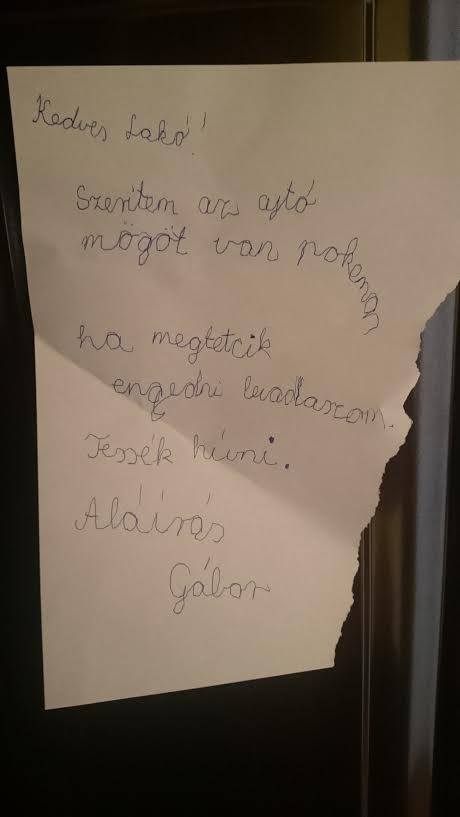 Kedves Lakó!
Szeritem az ajtó
mögöt van pokeman
ha megtetcik
engedni levadászom.
Tessék hívni.
Aláírás
Gábor